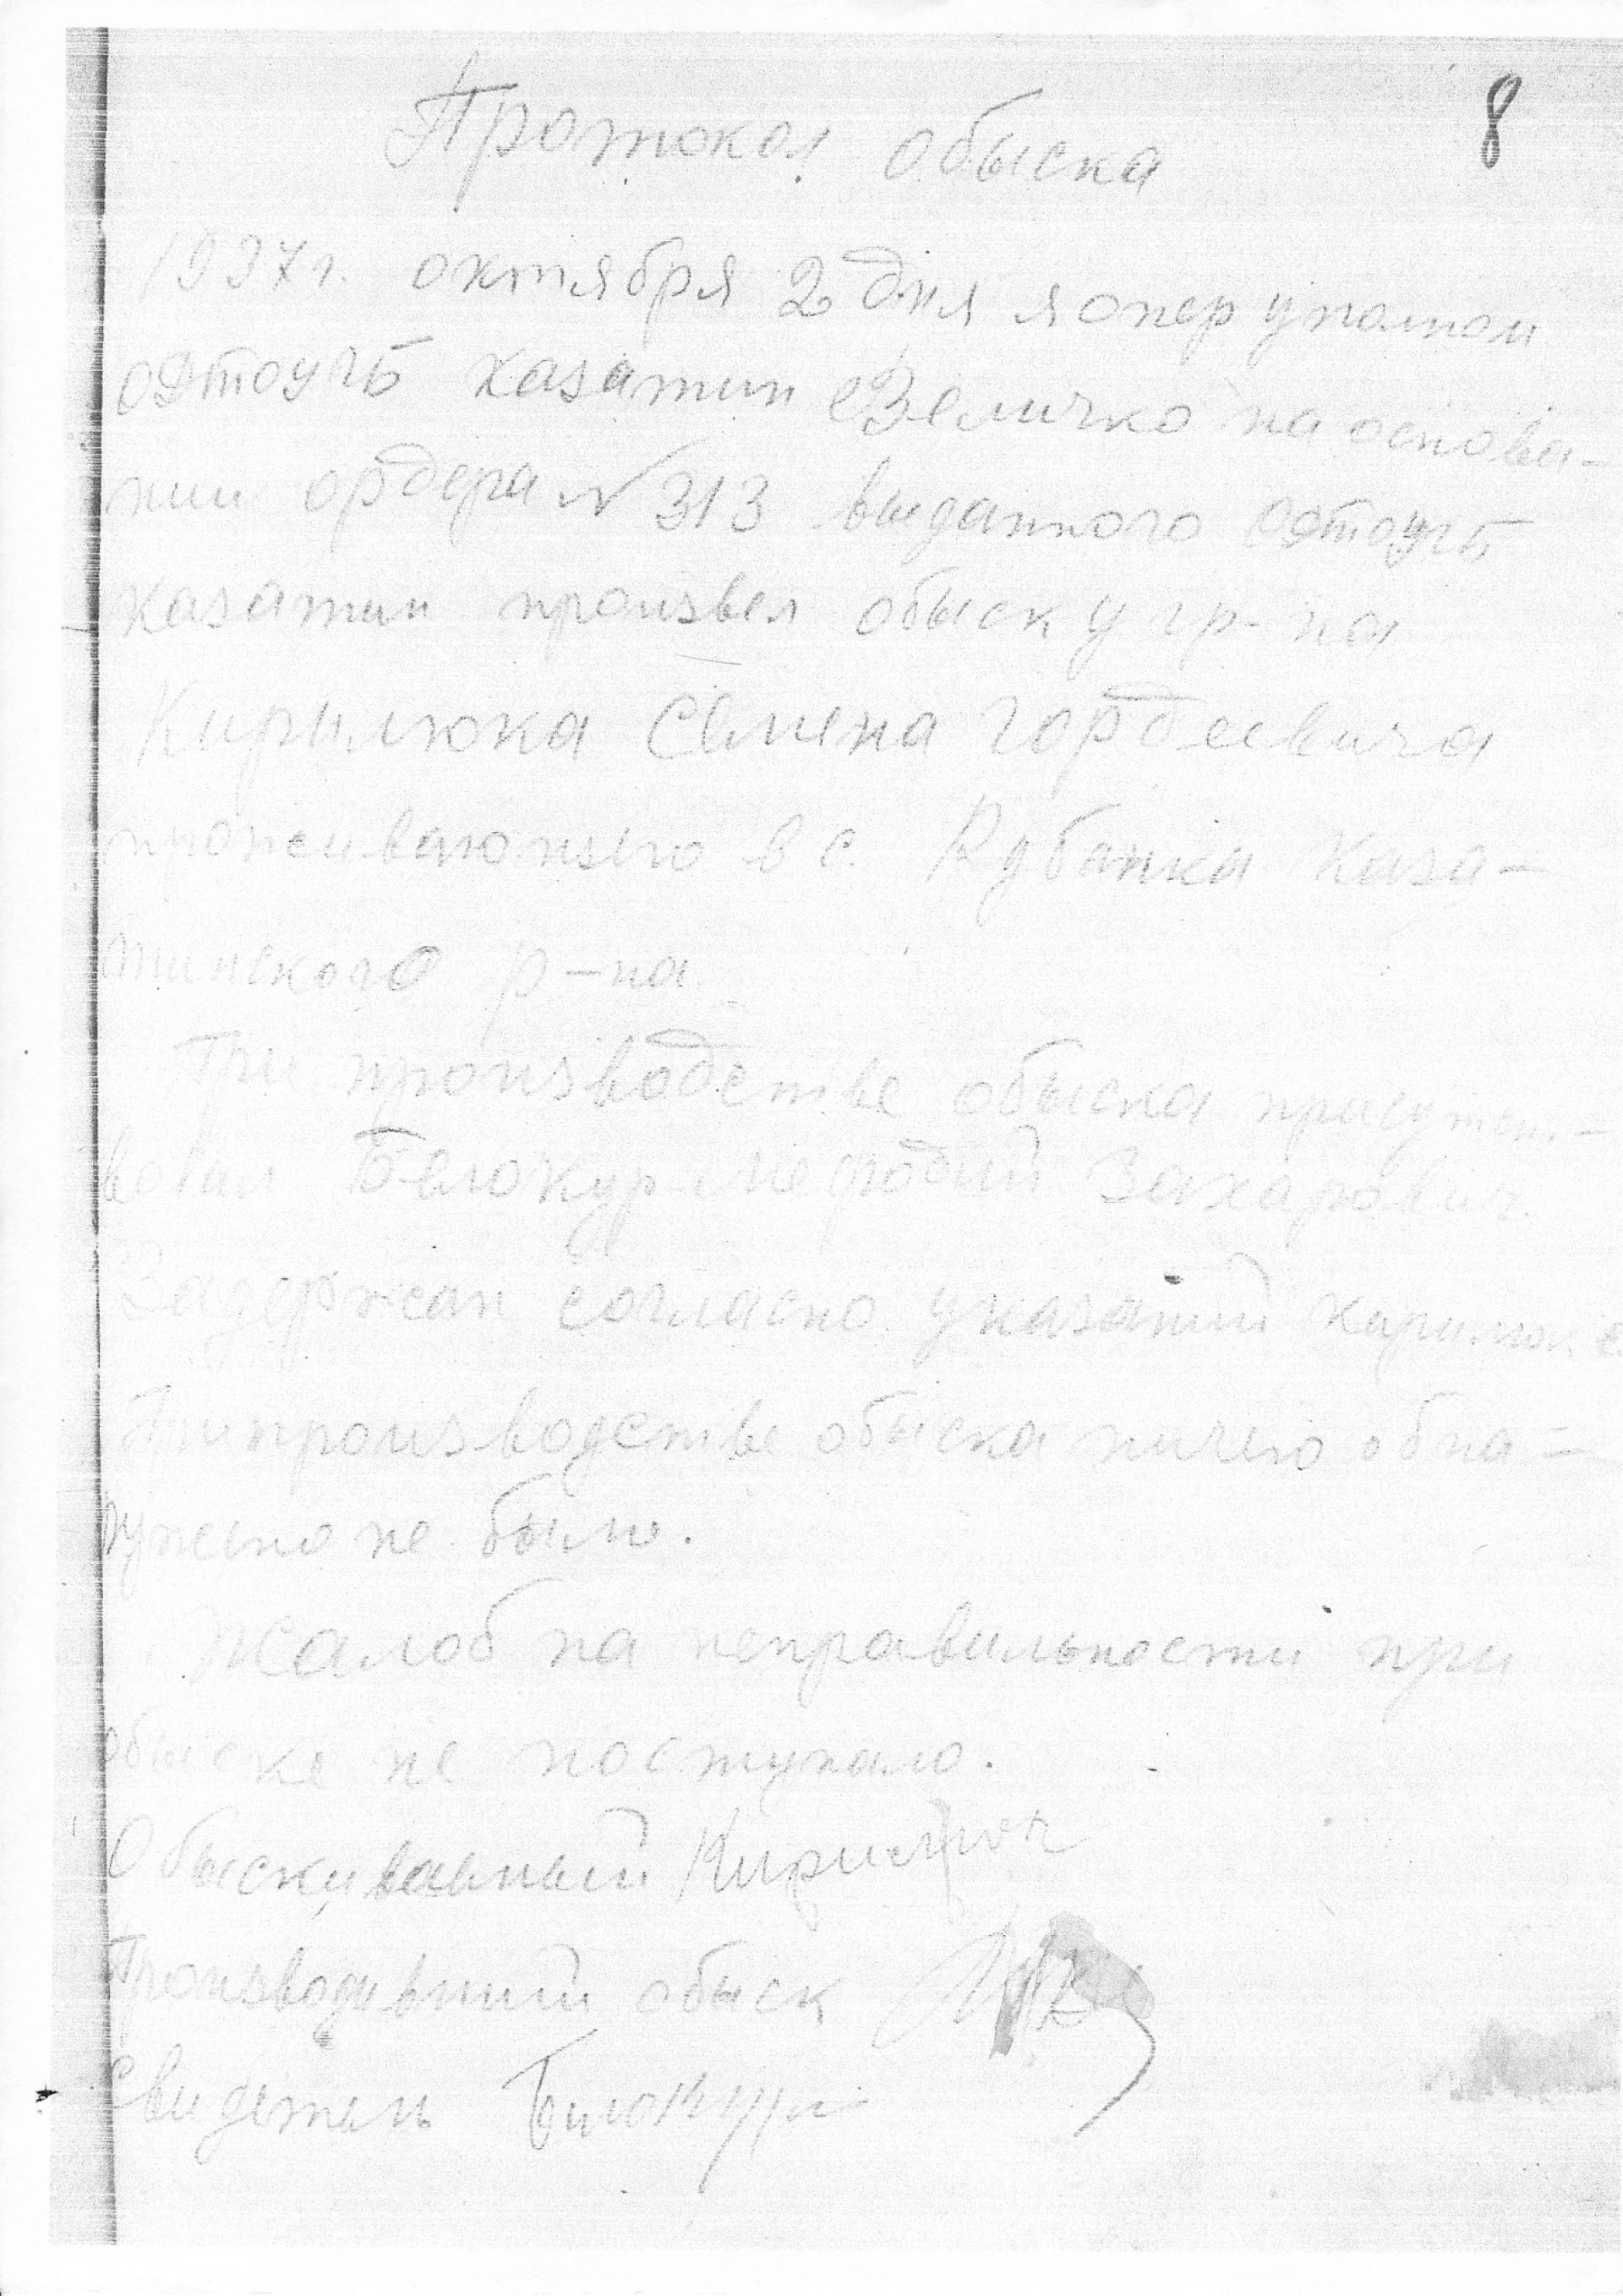 8
Протокол обыска
1937г. октября 2 дня я опер уполном
ОДТОУГБ Казатин Величко на основа-
нии ордера № 313 выданного ОДТОУГБ
Казатин произвел обыск у гр-на
Кирилюка Семена Гордеевича
проживающего в с. Кубанка Каза-
тинского р-на
При производстве обыска присутст-
вовал Белокур Мефодий Захарович.
Задержан согласно указаний Кирилюк С.
При производстве обыска ничего обна-
ружено не было.
Жалоб на неправильности при
обыске не поступало.
Обыскиваемый Кирилюк
Производивший обыск
Свидетель Билокур